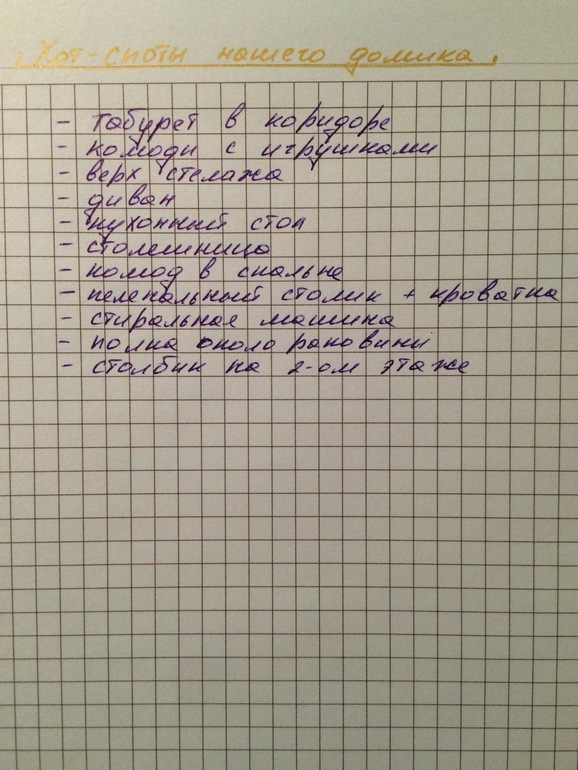 Хот-споты нашего домика
- табурет в коридоре
- комоды с игрушками
- верх стелажа
- диван
- кухонный стол
- столешница
- комод в спальне
- пеленальный столик + кроватка
- стиральная машина
- полка около раковины
- столбик на 2-ом этаже